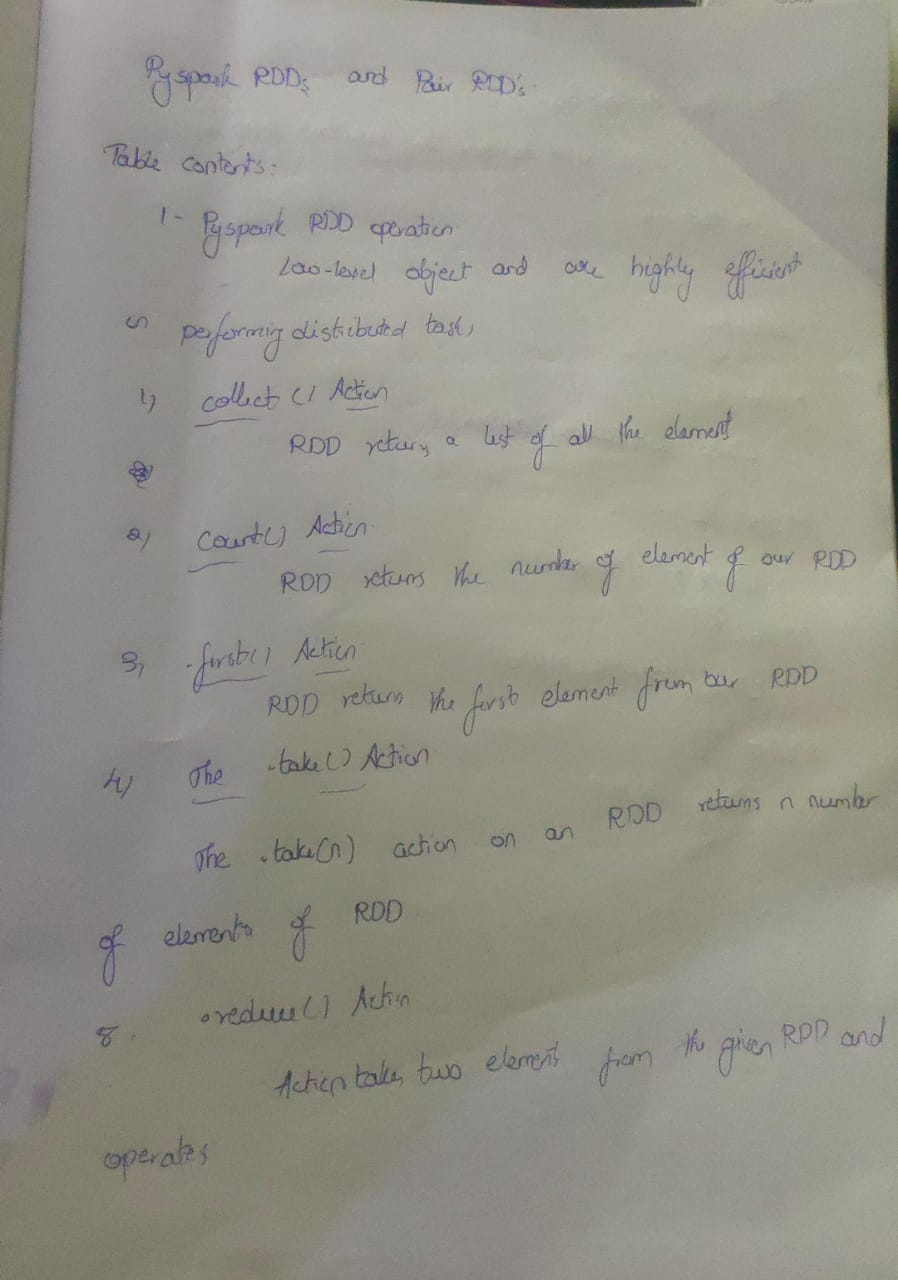 Pyspark RDDs and Pair RDD's.
Table contents:
1- Pyspark RDD operation
Low-level object and are highly efficient
in performing distributed tasks
1) collect () Action
RDD returns a list of all the element
2) Count() Action
RDD returns the number of element of our RDD
3, .first() Action
RDD return the first element from our RDD
4) The .take() Action
The .take(n) action on an RDD returns n number
of elements of RDD
8. .reduce() Action
Action takes two element from the given RDD and
operates